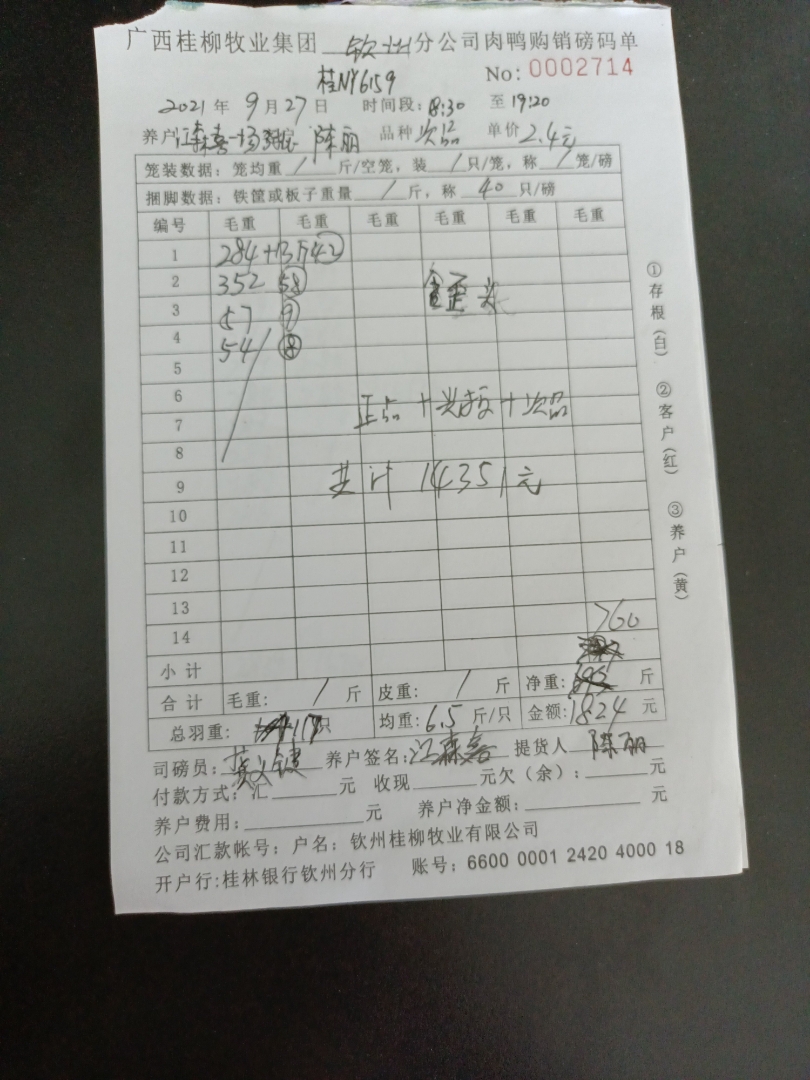 广西桂柳牧业集团 钦州 分公司肉鸭购销磅码单
桂NY6159 No: 0002714
2021 年 9 月 27 日 时间段: 8:30 至 19:20
养户 江森喜一场 陈丽 品种 次品 单价 2.4元
笼装数据: 笼均重 / 斤/空笼, 装 / 只/笼, 称 / 笼/磅
捆脚数据: 铁筐或板子重量 / 斤, 称 40 只/磅
编号 毛重 毛重 毛重 毛重 毛重 毛重
1 284+13 42
2 352 58
3 57 9
4 54 8
5
歪头
6
7 正品 + 光鸭 + 次品
8
9 共计 14351元
10
11
12
13 760
14
小计
合计 毛重: / 斤 皮重: / 斤 净重: 斤
总羽重: 117 只 均重: 6.5 斤/只 金额: 1824 元
司磅员: 养户签名: 江森喜 提货人 陈丽
付款方式: 汇 元 收现 元欠(余): 元
养户费用: 元 养户净金额: 元
公司汇款帐号: 户名: 钦州桂柳牧业有限公司
开户行:桂林银行钦州分行 账号: 6600 0001 2420 4000 18
①存根(白) ②客户(红) ③养户(黄)